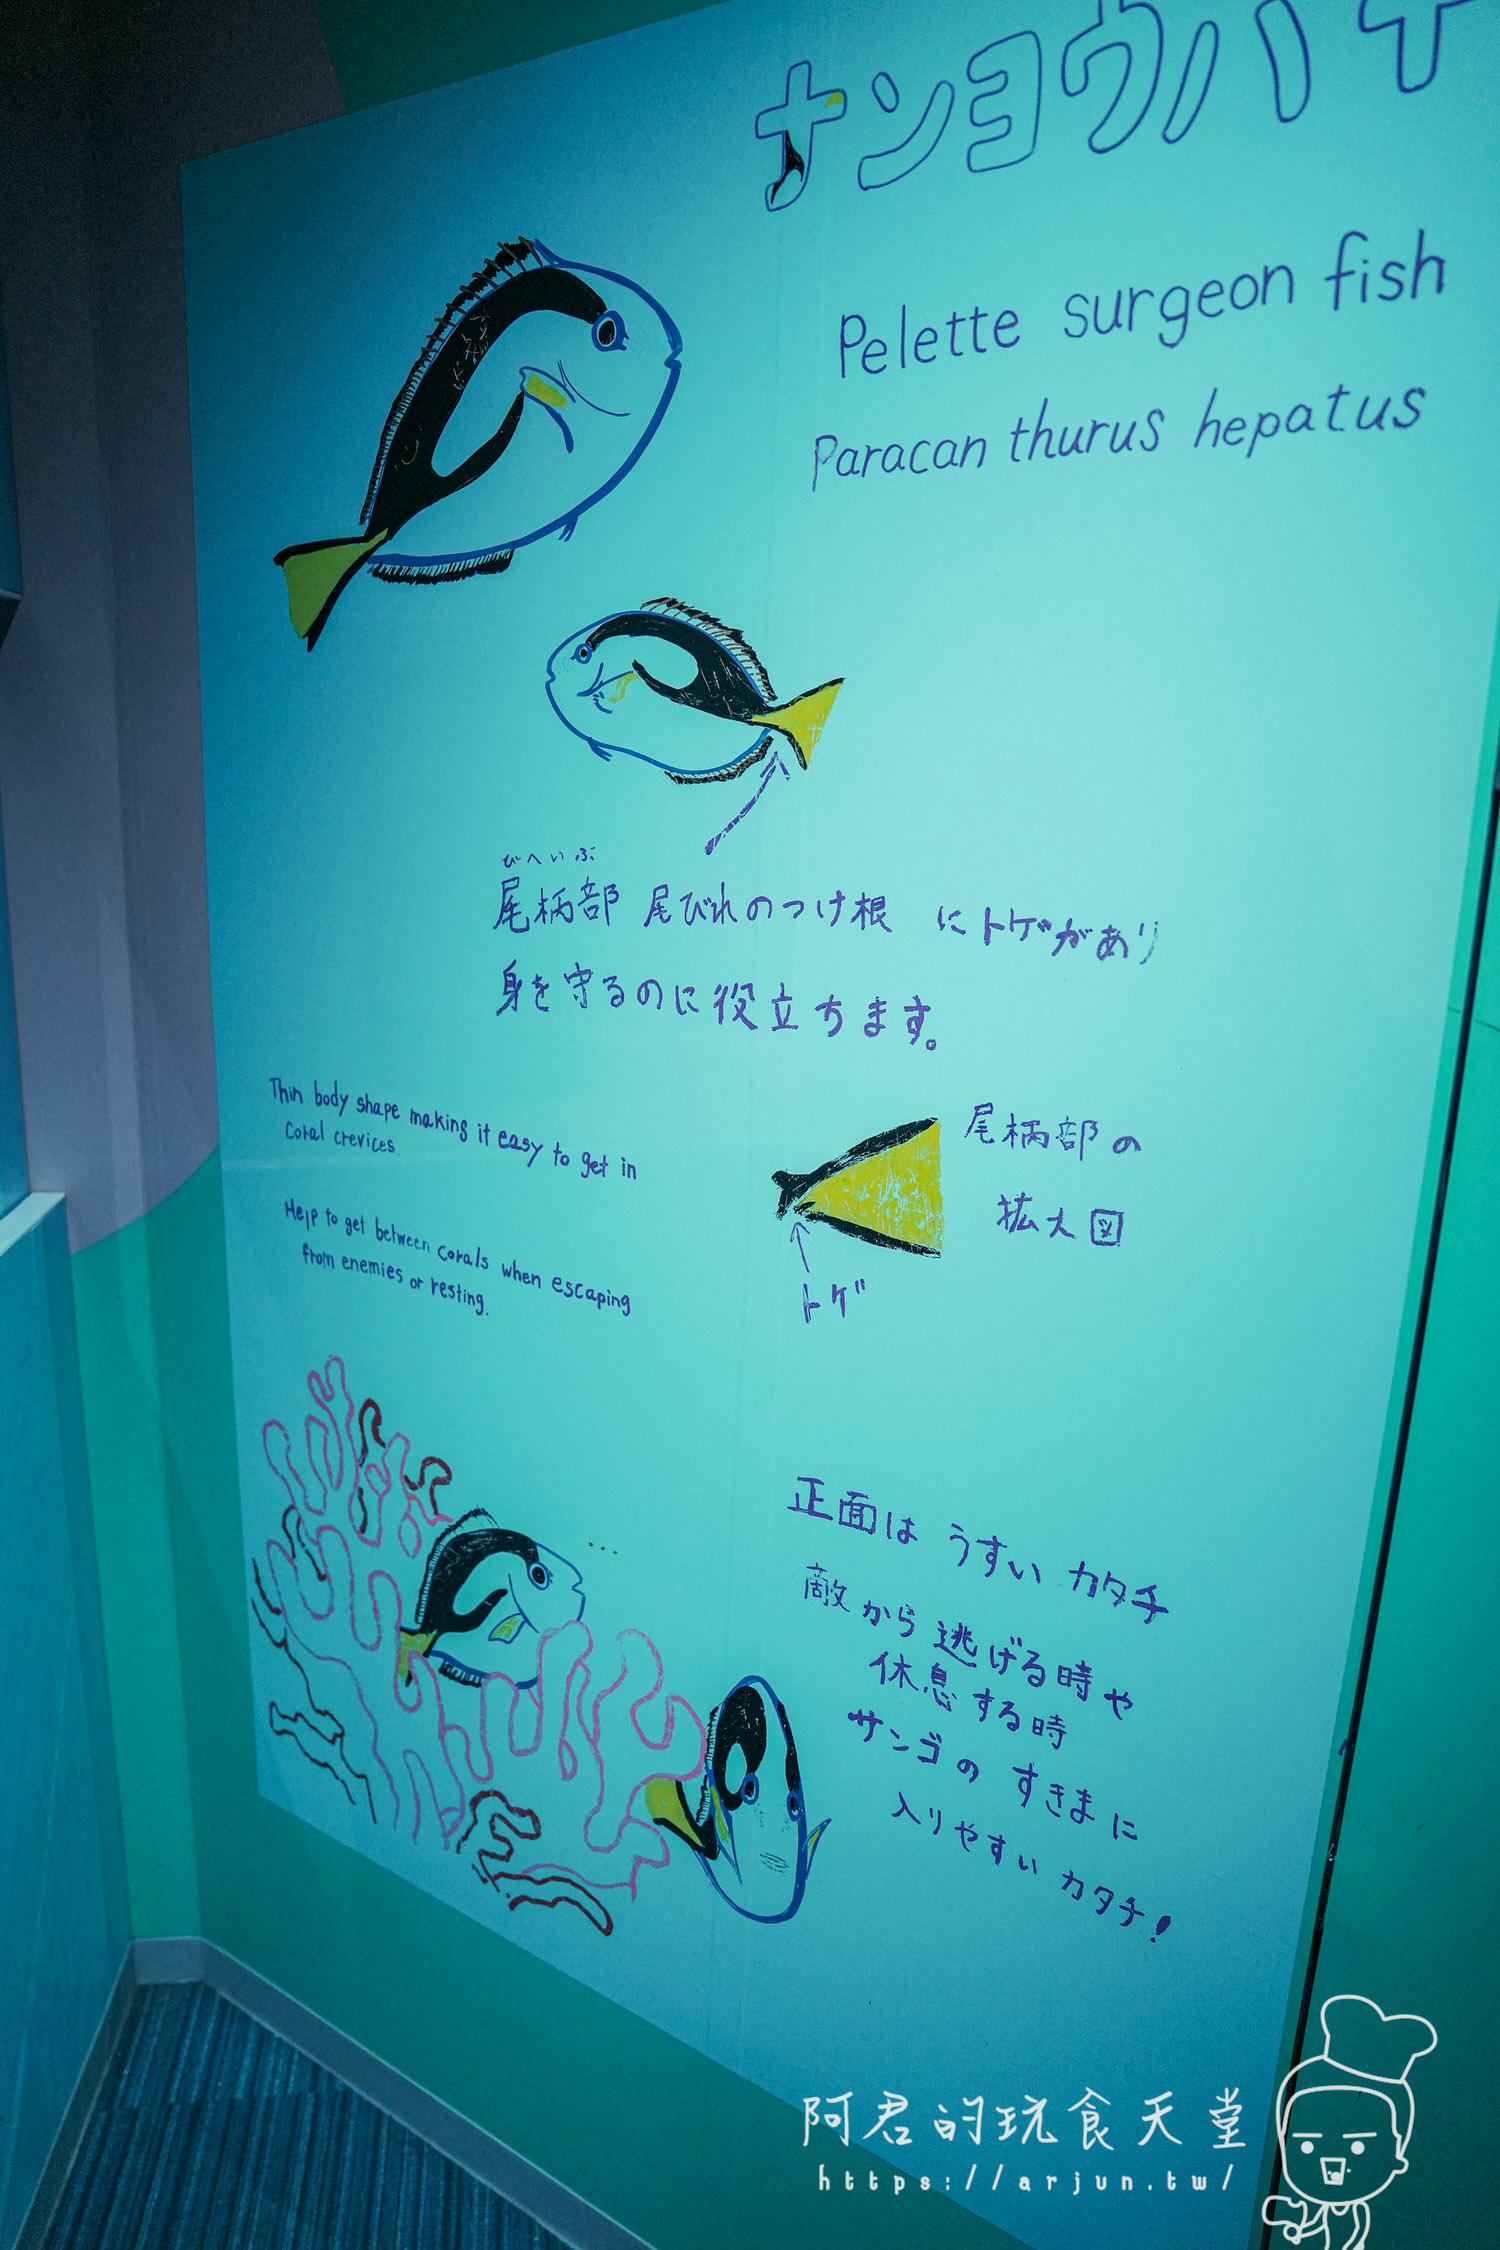 ナンヨウハギ
Pelette surgeon fish
Paracan thurus hepatus
びへいぶ
尾柄部 尾びれのつけ根 にトゲがあり
身を守るのに役立ちます。
Thin body shape making it easy to get in
Coral crevices.
Help to get between corals when escaping
from enemies or resting.
尾柄部の
拡大図
トゲ
正面は うすい カタチ
敵から逃げる時や
休息する時
サンゴの すきまに
入りやすい カタチ!
阿君的玩食天堂
https://arjun.tw/